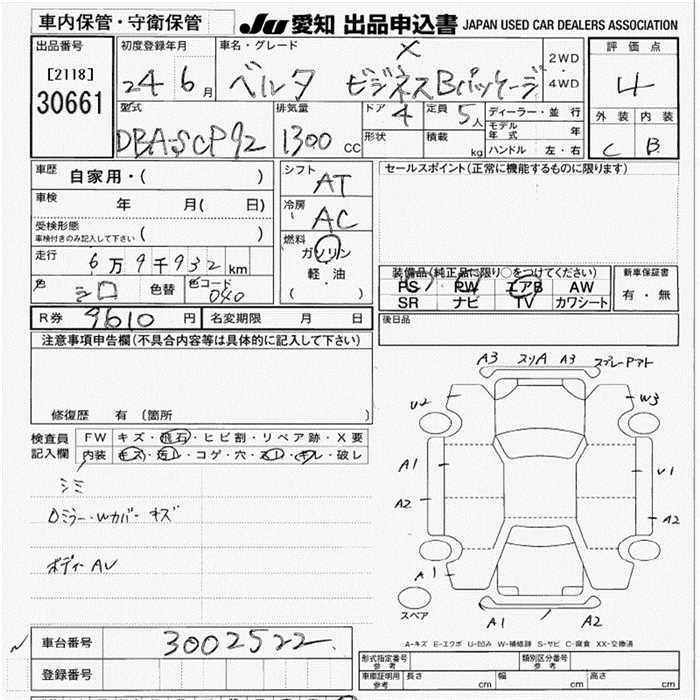 車内保管・守衛保管
JU 愛知 出品申込書 JAPAN USED CAR DEALERS ASSOCIATION
出品番号
[2118]
30661
初度登録年月
24 6月
車名・グレード
ベルタ ビジネスBパッケージ X
2WD
・
4WD
評価点
4
型式
DBA-SCP92
排気量
1300 CC
ドア
4
定員
5人
形状
積載
kg
ディーラー・並行
モデル年式 年
ハンドル 左・右
外装 内装
C B
車歴
自家用・( )
車検
年 月( 日)
受検形態
車検付きのみ記入して下さい ( )
走行
6万9千932km
色
シロ
色替
色コード
040
シフト
AT
冷房
AC
燃料
ガソリン
軽・油
( )
セールスポイント(正常に機能するものに限ります)
装備品(純正品に限り○をつけてください)
PS PW エアB AW
SR ナビ TV カワシート
新車保証書
有・無
R券 9610 円 名変期限 月 日
後日品
注意事項申告欄(不具合内容等は具体的に記入して下さい)
修復歴 有 〔箇所 〕
検査員
記入欄
FW キズ・飛石・ヒビ割・リペア跡・X要
内装 キズ・汚レ・コゲ・穴・スレ・キレ・破レ
シミ
Dミラー・Wカバー キズ
ボディーAU
A3 スリA A3 スプレーPアト
U2 W3
A1 U1
A2 A2
A1
スペア
A1 A2
A-キズ E-エクボ U-凹み W-補修跡 S-サビ C-腐食 XX-交換済
車台番号 3002522
登録番号
形式指定番号
参考
類別区分番号
参考
車庫証明用
参考
長さ cm 幅 cm 高さ cm